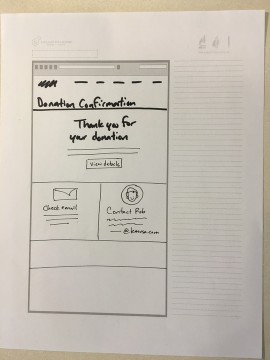 Donation Confirmation
Thank you for
your donation
View details
Check email
Contact Rob